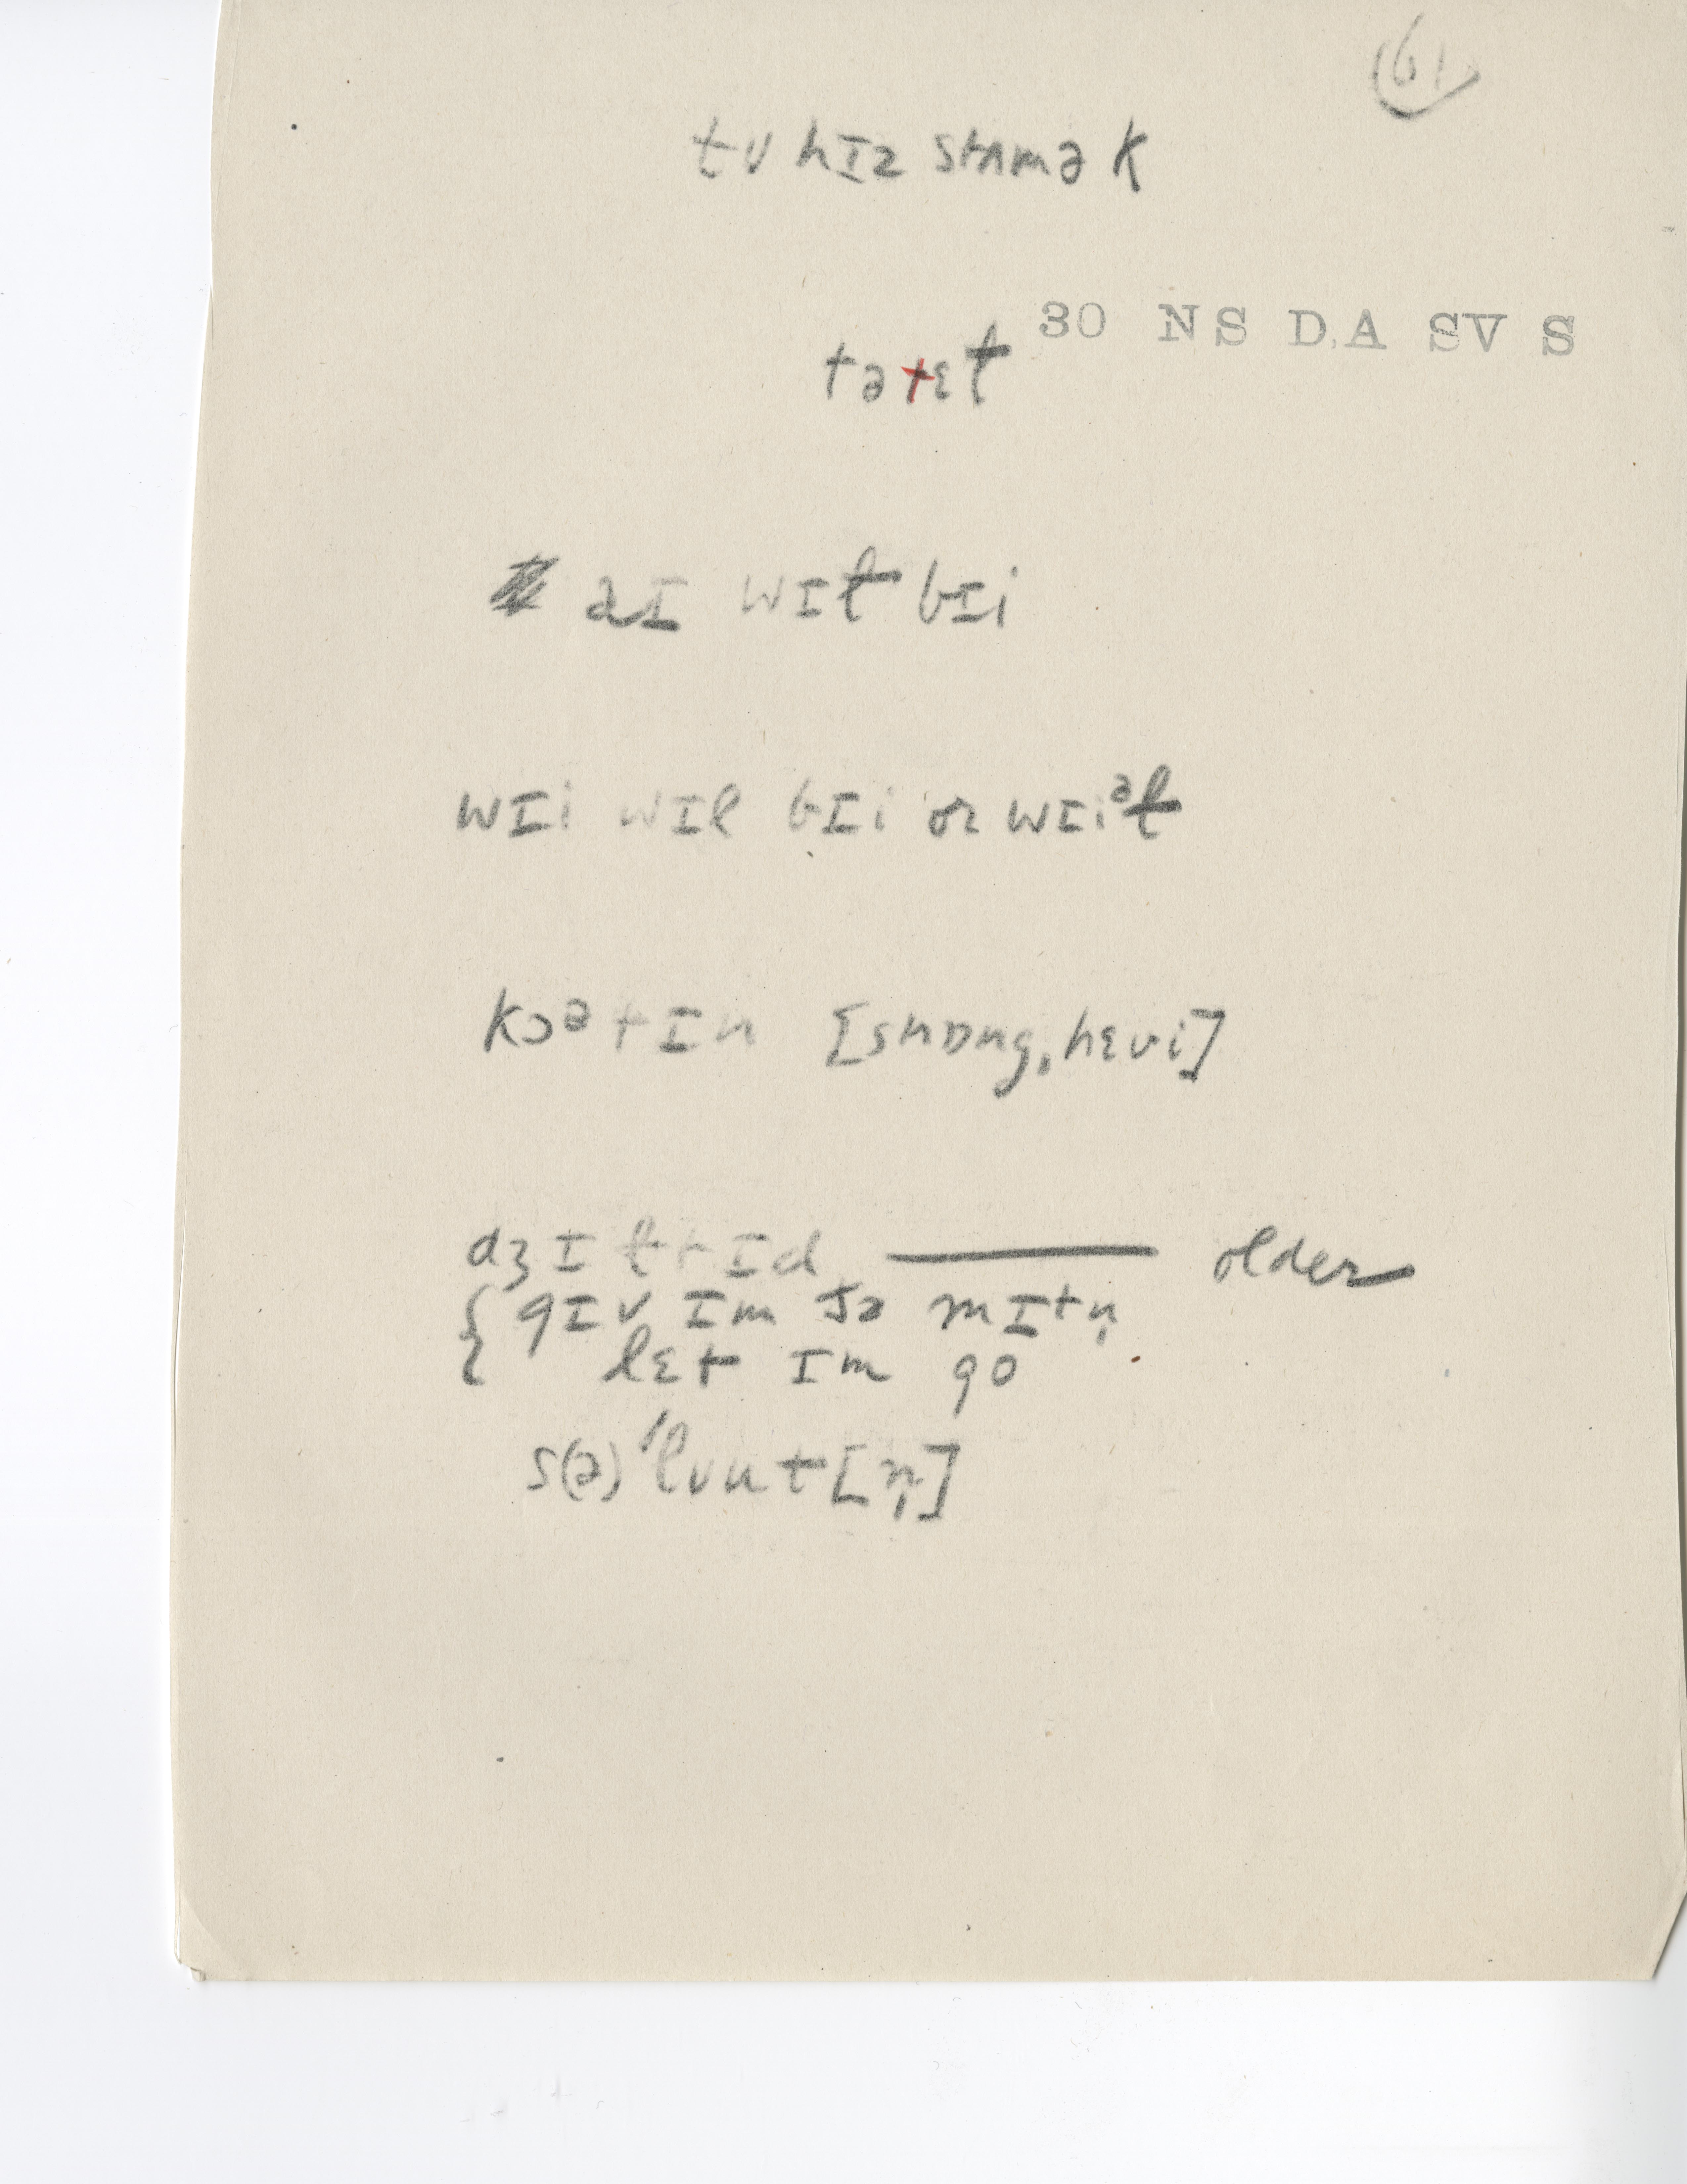 61
tʊ hɪz stʌmək
30 NS D.A SV S
tə tɛɫ
aɪ wɪɫ bɪi
wɪi wɪl bɪi or wɪiᵊɫ
kɔᵊtɪn [strɒng, hɛvi]
dʒɪltɪd ——— older
{ gɪv ɪm ðə mɪtn̩
lɛt ɪm go
s(ə)ˈlʊut[n̩]